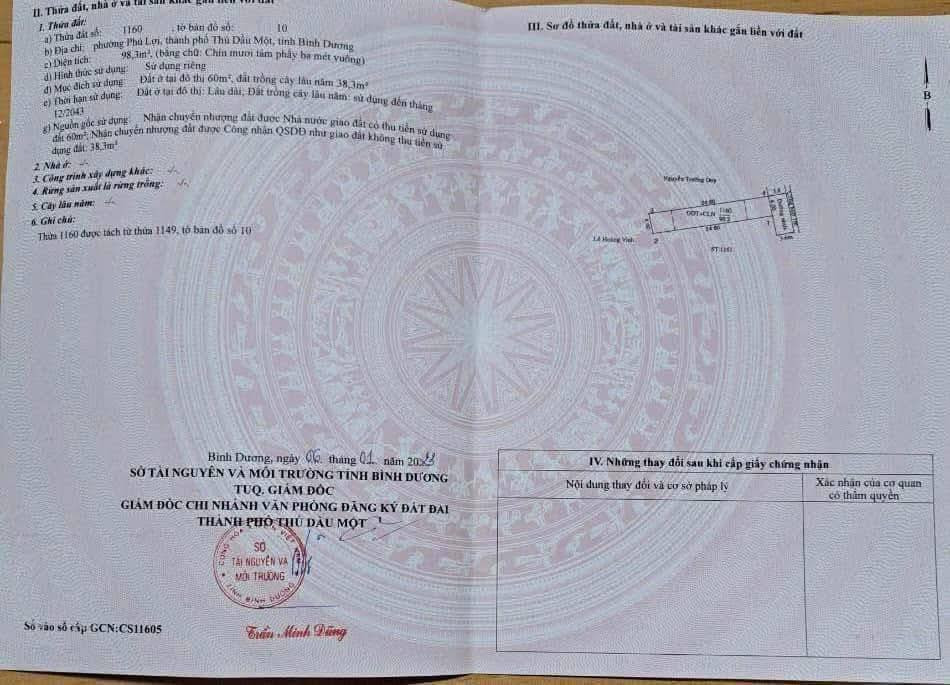 II. Thửa đất, nhà ở và tài sản khác gắn liền với đất
1. Thửa đất:
a) Thửa đất số: 1160 , tờ bản đồ số: 10
b) Địa chỉ: phường Phú Lợi, thành phố Thủ Dầu Một, tỉnh Bình Dương
c) Diện tích: 98,3m², (bằng chữ: Chín mươi tám phẩy ba mét vuông)
d) Hình thức sử dụng: Sử dụng riêng
đ) Mục đích sử dụng: Đất ở tại đô thị 60m², đất trồng cây lâu năm 38,3m²
e) Thời hạn sử dụng: Đất ở tại đô thị: Lâu dài; Đất trồng cây lâu năm: sử dụng đến tháng
12/2043
g) Nguồn gốc sử dụng: Nhận chuyển nhượng đất được Nhà nước giao đất có thu tiền sử dụng
đất 60m²; Nhận chuyển nhượng đất được Công nhận QSDĐ như giao đất không thu tiền sử
dụng đất: 38,3m²
2. Nhà ở: -/-
3. Công trình xây dựng khác: -/-
4. Rừng sản xuất là rừng trồng: -/-
5. Cây lâu năm: -/-
6. Ghi chú:
Thửa 1160 được tách từ thửa 1149, tờ bản đồ số 10
Bình Dương, ngày 06 tháng 01 năm 2023
SỞ TÀI NGUYÊN VÀ MÔI TRƯỜNG TỈNH BÌNH DƯƠNG
TUQ. GIÁM ĐỐC
GIÁM ĐỐC CHI NHÁNH VĂN PHÒNG ĐĂNG KÝ ĐẤT ĐAI
THÀNH PHỐ THỦ DẦU MỘT
SỞ
TÀI NGUYÊN VÀ
MÔI TRƯỜNG
TỈNH BÌNH DƯƠNG
Trần Minh Dũng
Số vào sổ cấp GCN:CS11605
III. Sơ đồ thửa đất, nhà ở và tài sản khác gắn liền với đất
B
Nguyễn Trường Duy
ODT+CLN
1160
98.3
Lê Hoàng Vinh
2
ST:1161
IV. Những thay đổi sau khi cấp giấy chứng nhận
Nội dung thay đổi và cơ sở pháp lý
Xác nhận của cơ quan
có thẩm quyền